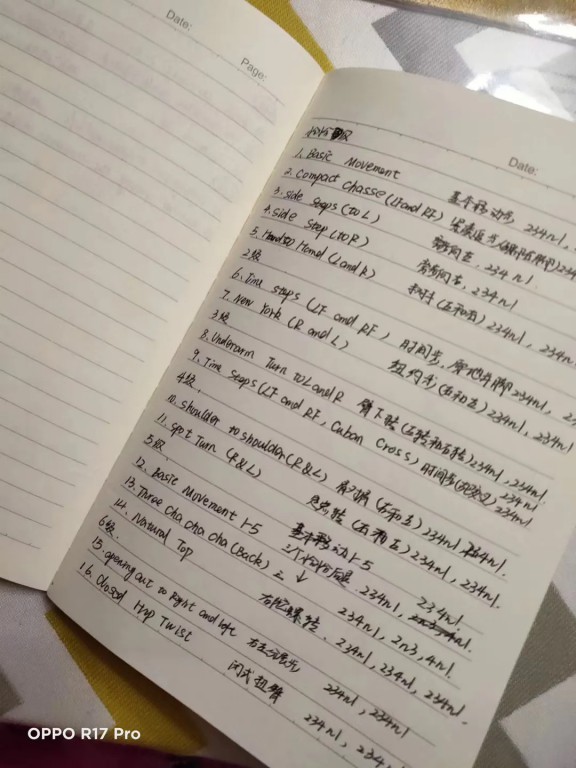 Date:
Page:
Date:
恰恰 级
1. Basic Movement 基本移动步, 234nl,
2. Compact Chasse (LF and RF) 234
3. side steps (to L) 旁方向左, 234nl
4. side step (to R) 旁方向右, 234nl
5. Hand to Hand (L and R) 手对手 (左和右) 234nl, 234n
2级
6. Time steps (LF and RF) 时间步, 234nl,
7. New York (R and L) 纽约步 (右和左) 234nl, 234nl
3级
8. Underarm Turn to L and R 臂下转 (左转和右转) 234nl, 234nl.
9. Time Steps (LF and RF, Cuban Cross) 时间步 234nl
4级
10. shoulder to shoulder (R&L) 肩对肩 (右和左) 234nl, 234nl.
11. Spot Turn (R&L) 定点转 (右和左) 234nl, 234nl.
5级
12. Basic Movement 1-5 基本移动 1-5 234nl.
13. Three Cha Cha Cha (Back) 三个恰恰后退. 234nl,
234nl, 2n3, 4nl.
14. Natural Top 右陀螺转. 234nl, 234nl, 234nl.
6级
15. opening out to Right and left 右左分展步 234nl, 234nl
16. Closed Hip Twist 闭式扭臀 234nl, 234
OPPO R17 Pro